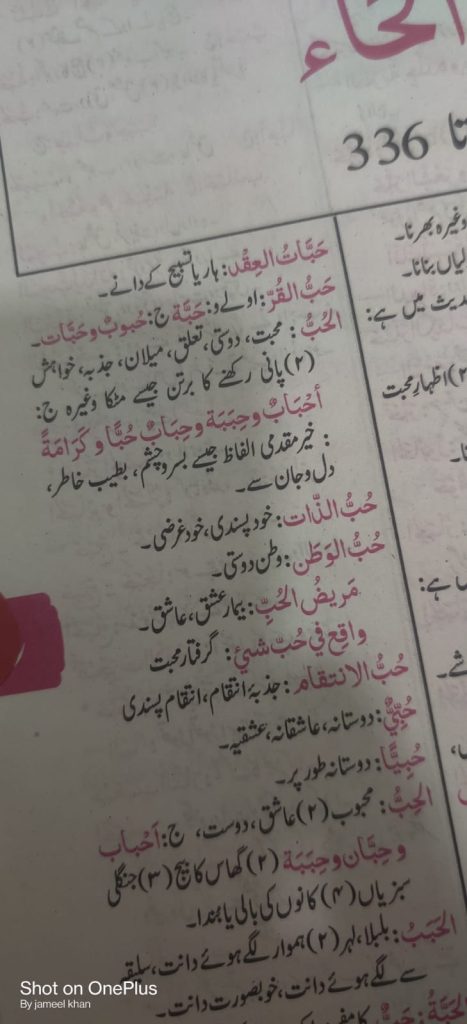 الحاء
336 تا
وغیرہ بھرنا۔
لیاں بنانا۔
دیث میں ہے:
۲) اظہارِ محبت
حَبَّاتُ العِقْد: ہار یا تسبیح کے دانے۔
حَبُّ القُرّ: اولے و: حَبَّة ج: حُبوبٌ و حَبَّات۔
الحُبُّ: محبت، دوستی، تعلق، میلان، جذبہ، خواہش
(۲) پانی رکھنے کا برتن جیسے مٹکا وغیرہ ج:
أَحْبَابٌ وحِبَبَة وحِبَابٌ حُبًّا و كَرَامَةً
: خیر مقدمی الفاظ جیسے بسر و چشم، بطیب خاطر،
دل و جان سے۔
حُبُّ الذَّات: خود پسندی، خود غرضی۔
حُبُّ الوَطَن: وطن دوستی۔
مَرِيضُ الحُبّ: بیمار عشق، عاشق۔
واقِع في حُبّ شيئ: گرفتار محبت
حُبُّ الانتقام: جذبۂ انتقام، انتقام پسندی
حُبِّيٌّ: دوستانہ، عاشقانہ، عشقیہ۔
حُبِيًّا: دوستانہ طور پر۔
الحِبُّ: محبوب (۲) عاشق، دوست، ج: أَحْباب
و حِبَّان و حِبَبَة (۲) گھاس کا بیج (۳) جنگلی
سبزیاں (۴) کانوں کی بالی یا بُندا۔
الحَبَبُ: بلبلا، لہر (۲) ہموار لگے ہوئے دانت، سلیقہ
سے لگے ہوئے دانت، خوبصورت دانت۔
الحَبَّةُ: حَبٌّ کا
Shot on OnePlus
By jameel khan